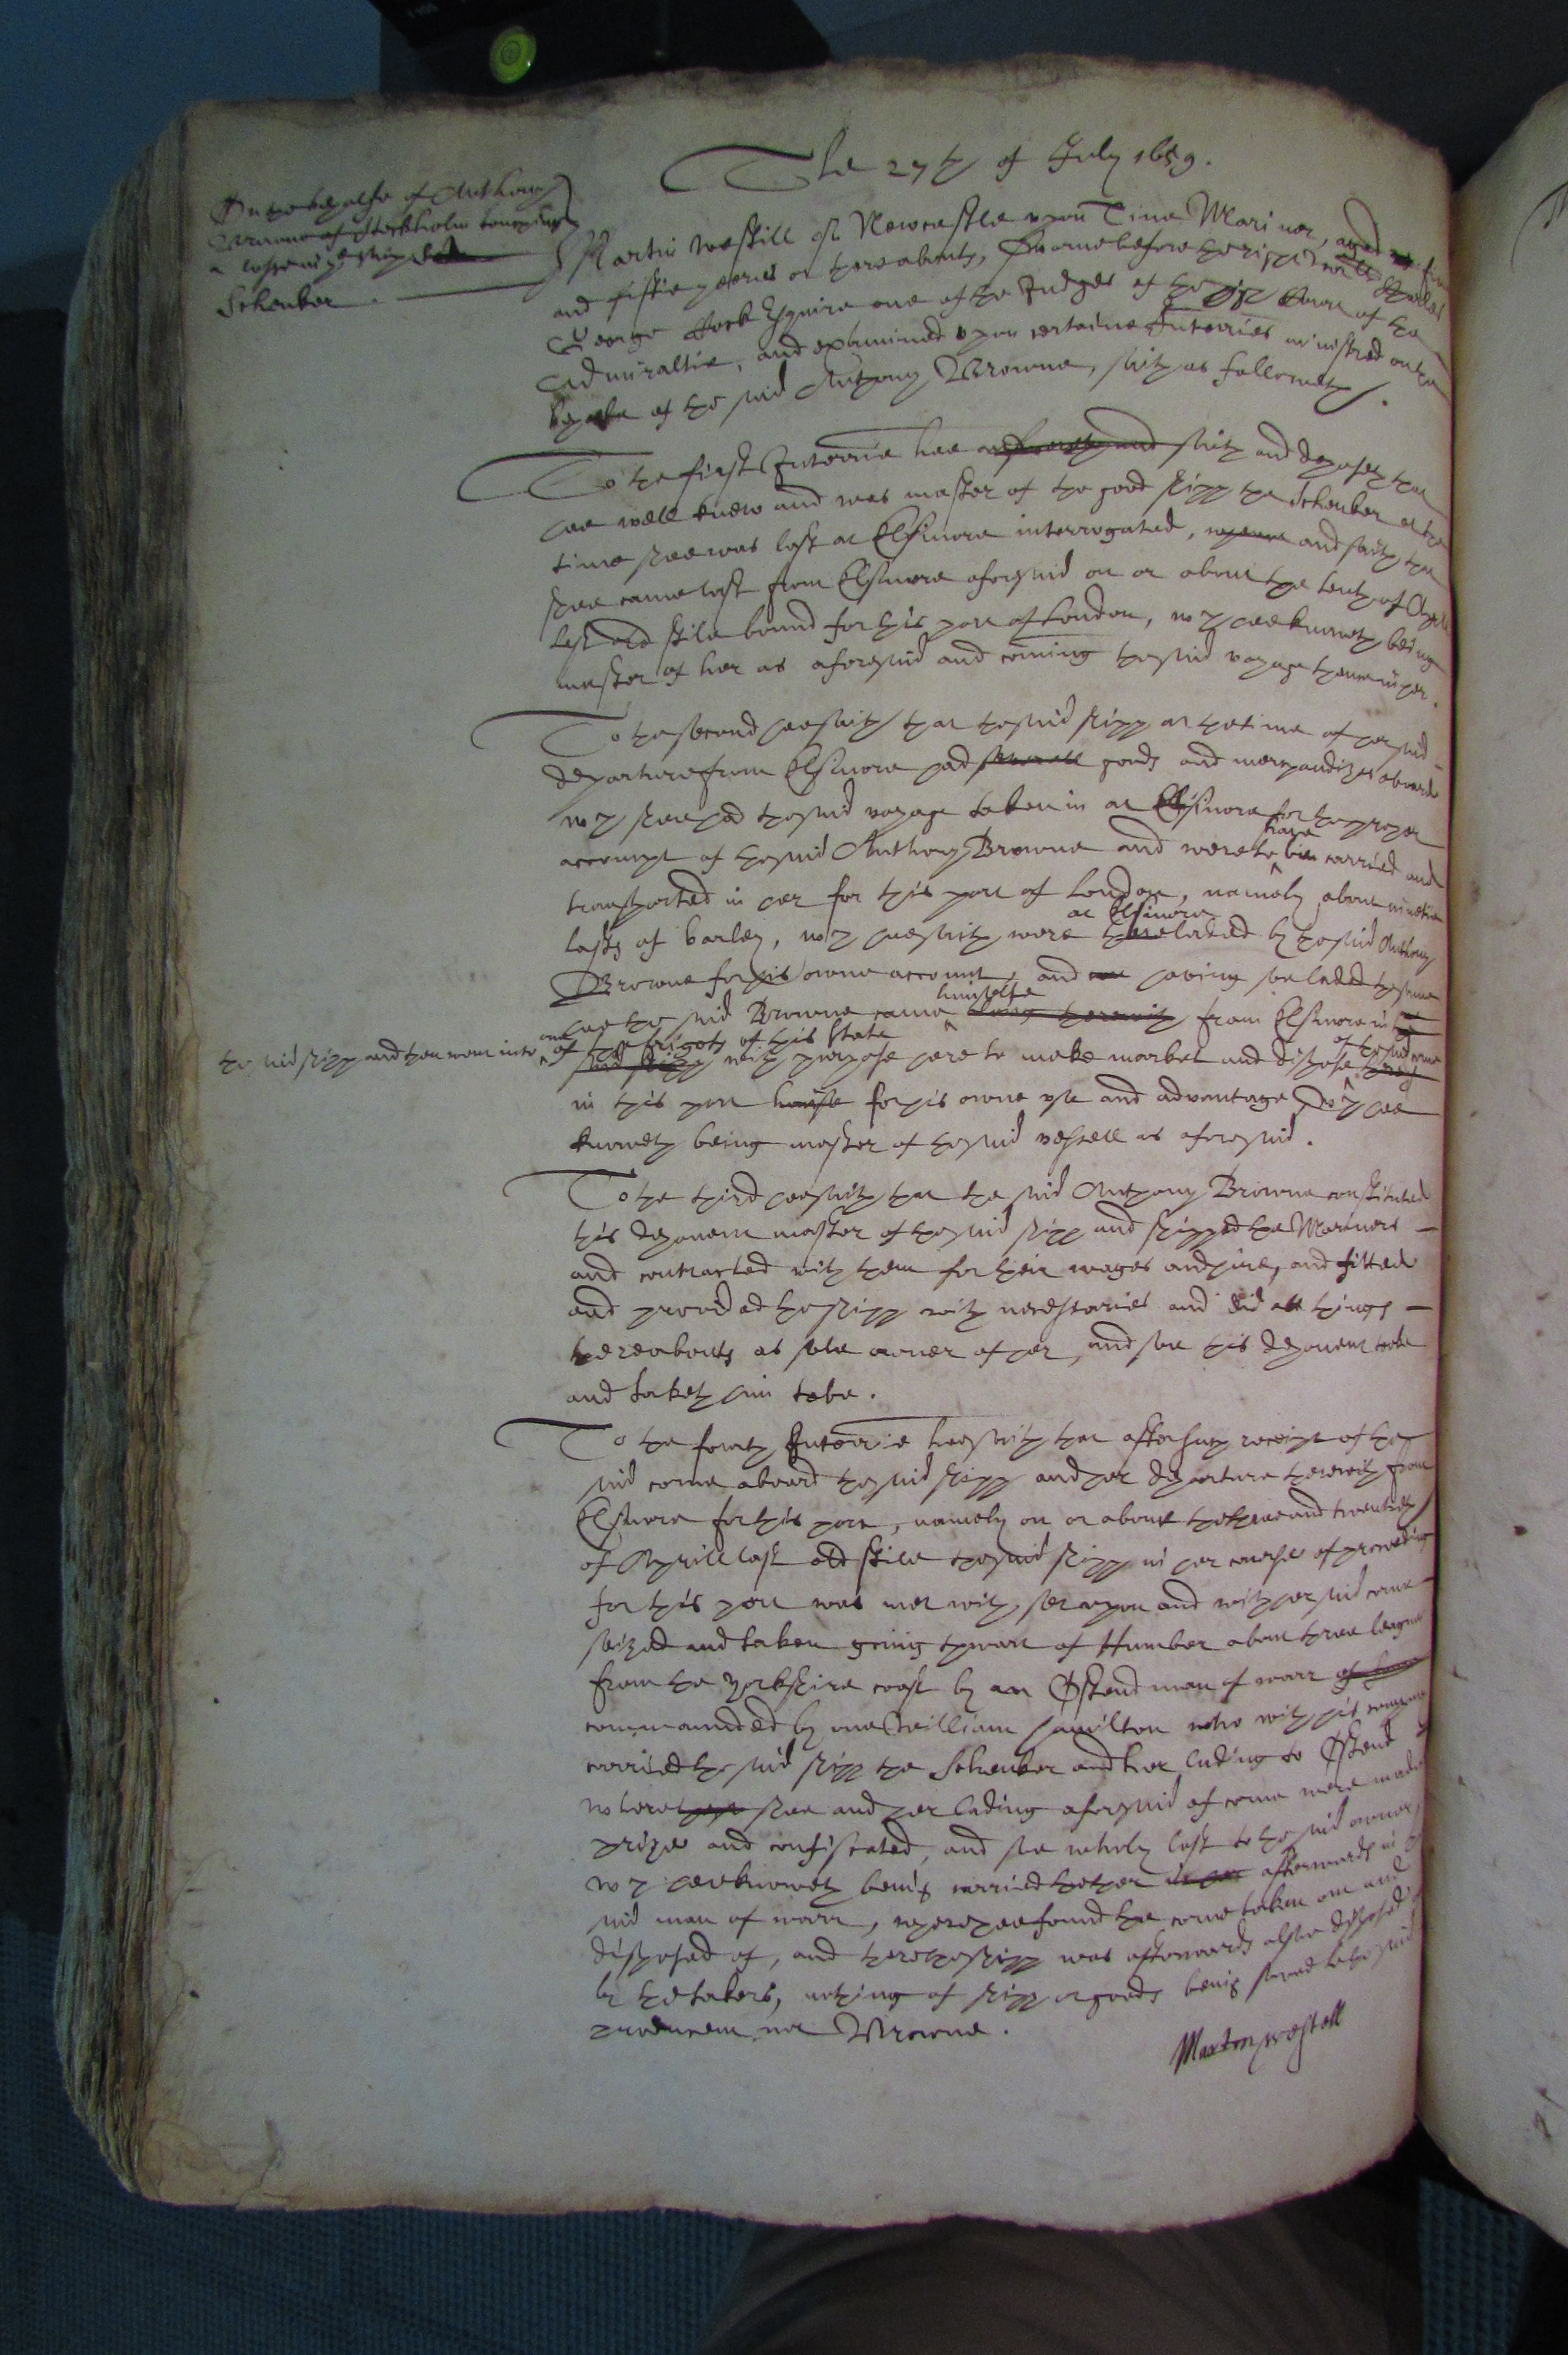 The 27th of July 1659.
On the behalfe of Anthony
Browne of Stockholm touching
a losse in the ship
Schenber.
Martin Westill of Newcastle upon Tine Mariner, aged
and fiftie yeeres or thereabouts, sworne before the right worll Charles
George Cock Esquire one of the Judges of the high Court of the
Admiraltie, and examined upon certaine Interries ministred on the
behalfe of the said Anthony Browne, saith as followeth.
To the first Interrie hee answereth and saith and deposeth that
hee well knew and was master of the good shipp the Schenber at the
time shee was last at Elsinore interrogated, and saith that
shee came last from Elsinore aforesaid on or about the tenth of Aprill
last old stile bound for this port of London, wch hee knoweth being
master of her as aforesaid and coming the said voyage thence in her.
To the second hee saith that the said shipp at the time of her said
departure from Elsinore had severall goods and merchandizes aboard
wch shee had the said voyage taken in at Elsinore for the proper
accompt of the said Anthony Browne and were to have bin carried and
transported in her for this port of London, namely about ninetie
lasts of barley, wch hee saith were at Elsinore laded by the said Anthony
Browne for his owne account, and having soe laded the same
hee the said Browne came himselfe along therewith from Elsinore in
the said shipp and then went into one of the frigots of this State
said shipp with purpose here to make market and dispose of the said corne
in this port for his owne use and advantage, wch hee
knoweth being master of the said vessell as aforesaid.
To the third hee saith that the said Anthony Browne constituted
this deponent master of the said shipp and shipped the Mariners
and contracted with them for their wages and hire, and fitted
and provided the shipp with necessaries and did all things
thereabouts as sole owner of her, and soe this deponent tooke
and taketh him to be.
To the fourth Interrie hee saith that after such receipt of the
said corne aboard the said shipp and her departure therewith from
Elsinore for this port, namely on or about the three and twentieth
of Aprill last old stile the said shipp in her course of proceeding
for this port was met with, set upon and with her said corne
seized and taken going thwart of Humber about three leagues
from the Yorkshire coast by an Ostend man of warr
commanded by one William Hamilton who with his company
carried the said shipp the Schenber and her lading to Ostend
where shee and her lading aforesaid of corne were made
prize and confiscated, and soe wholy lost to the said owner,
wch hee knoweth being carried thether afterwards in the
said man of warr, where hee found the corne taken out and
disposed of, and there the shipp was afterwards alsoe disposed of
by the takers, nothing of shipp or goods being saved to the said
producent Browne.
Marton westell